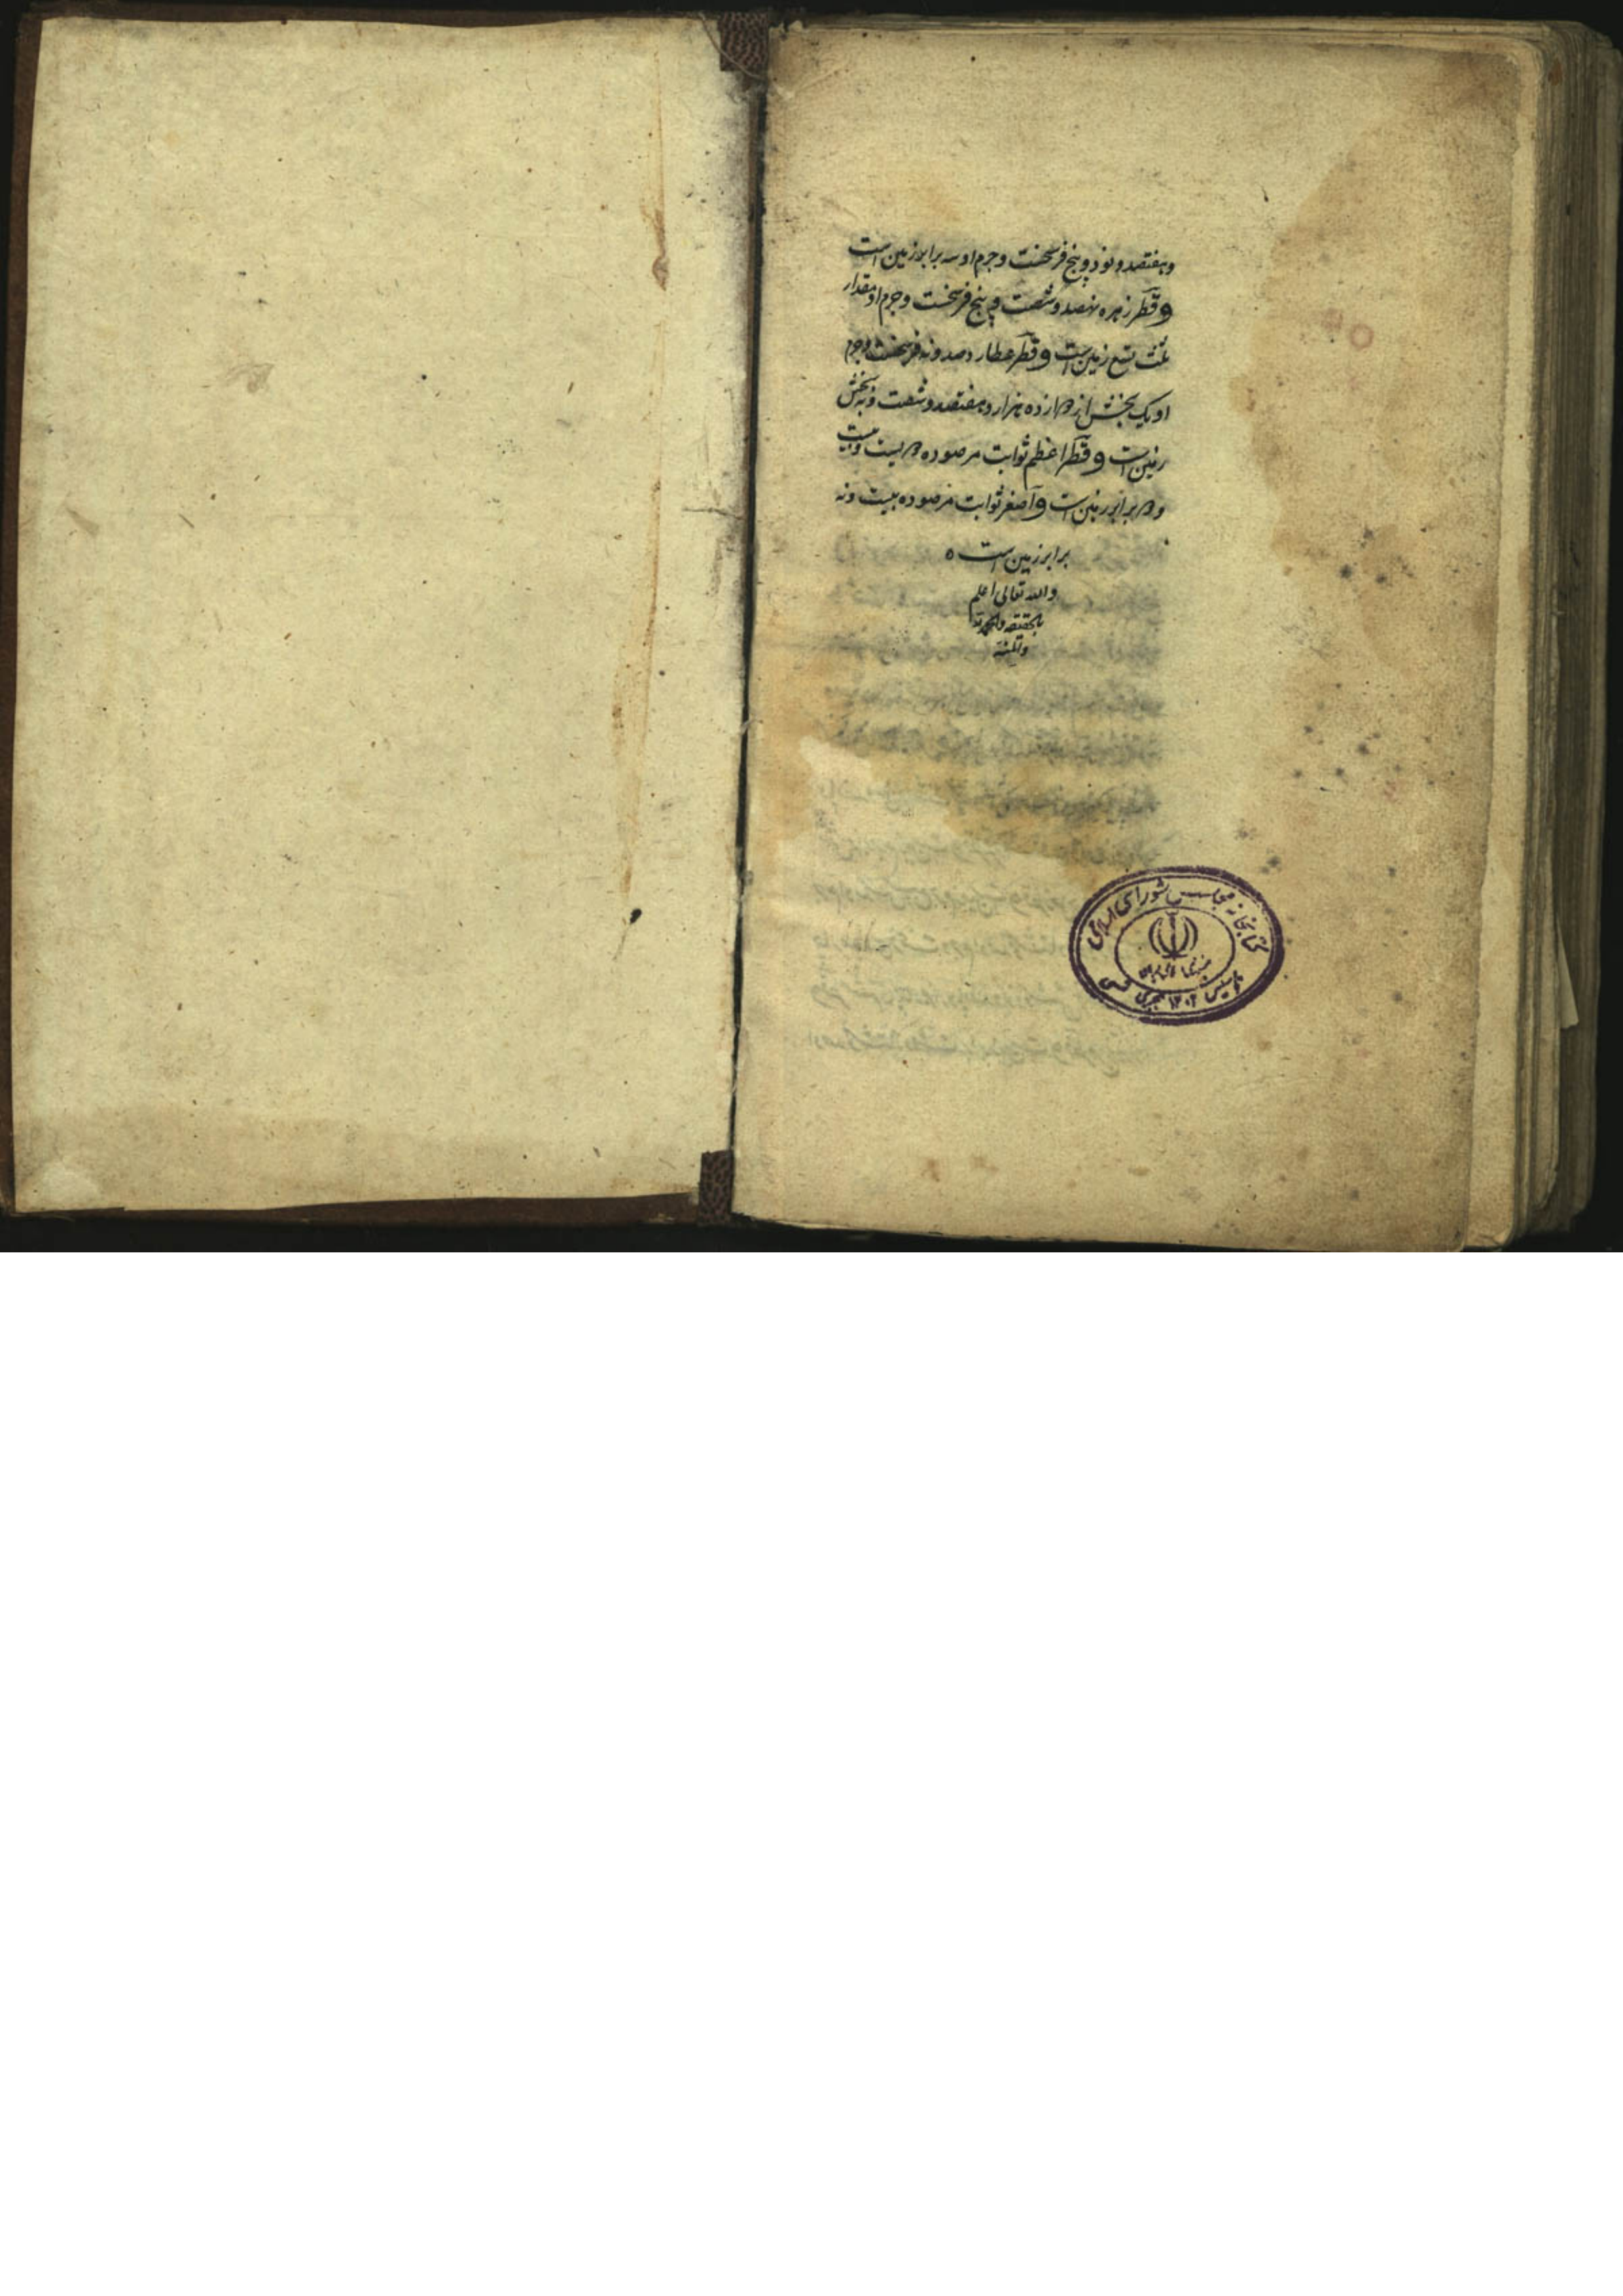 وهفتصد و نود و پنج فرسخست و جرم او سه برابر زمین است
و قطر زهره نهصد و شصت و پنج فرسخست و جرم او مقدار
ثلث تسع زمین است و قطر عطارد صد و نه فرسخست و جرم
او یک بخش از دوازده هزار و هفتصد و شصت و نه بخش
زمین است و قطر اعظم ثوابت مرصوده دویست و بیست
و دو برابر زمین است و اصغر ثوابت مرصوده بیست و نه
برابر زمین است ه
والله تعالی اعلم
بالحقیقه والحمدلله
والمنه
کتابخانه مجلس شورای اسلامی
جمهوری اسلامی ایران
تأسیس ۱۳۰۲ هجری شمسی